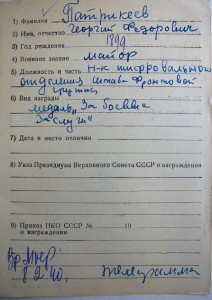 1) Фамилия Патрикеев
2) Имя, отчество Георгий Федорович
3) Год рождения 1899
4) Военное звание майор
5) Должность и часть н-к шифровального
отделения штаба фронтовой
группы
6) Вид награды
медаль „За боевые
заслуги"
7) Дата и место отличия
8) Указ Президиума Верховного Совета СССР о награждении
9) Приказ НКО СССР № 19
о награждении
8 2 40г.
Телеграмма